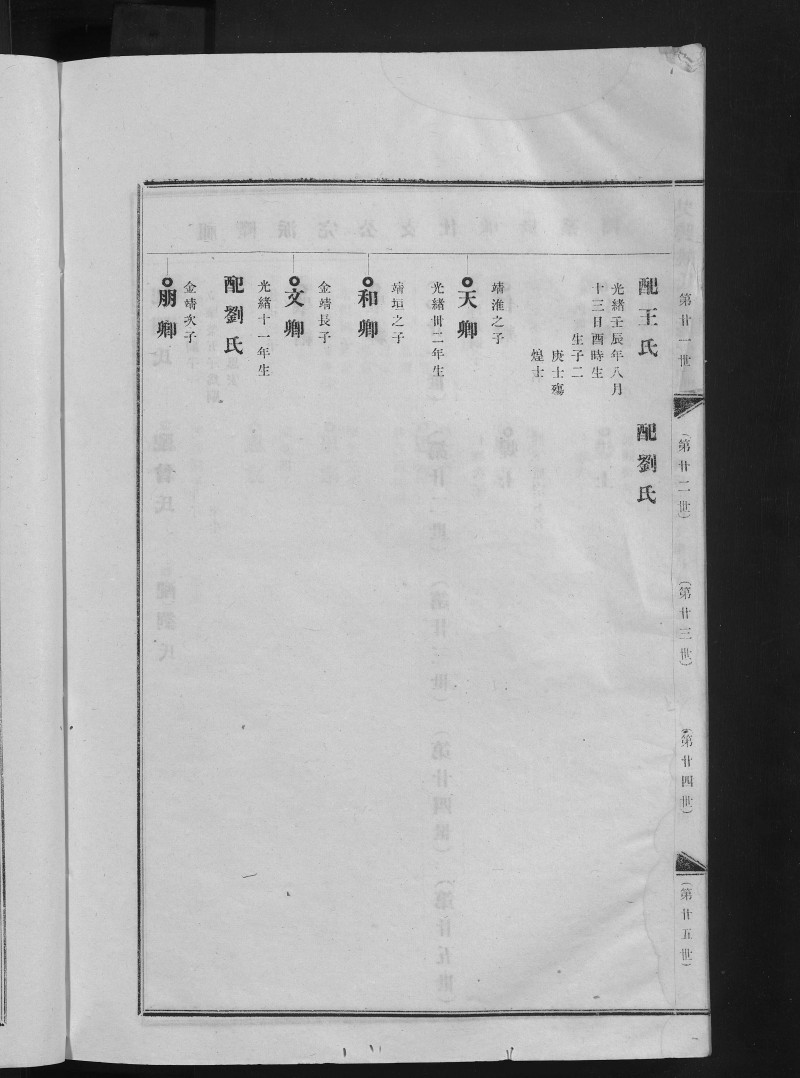 第廿一世
(第廿二世)
(第廿三世)
(第廿四世)
(第廿五世)
配王氏 配劉氏
光緒壬辰年八月
十三日酉時生
生子二
庚士殤
煌士
靖淮之子
天卿
光緒卅二年生
靖垣之子
和卿
金靖長子
文卿
光緒十一年生
配劉氏
金靖次子
朋卿